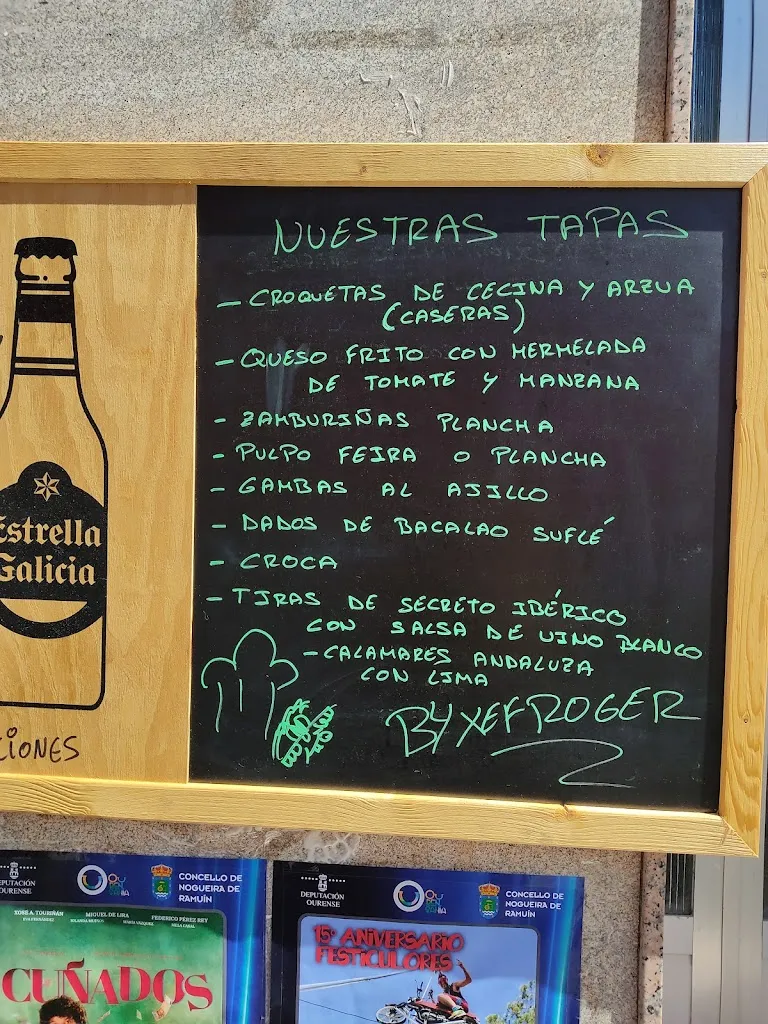 NUESTRAS TAPAS
- CROQUETAS DE CECINA Y ARZUA
(CASERAS)
- QUESO FRITO CON MERMELADA
DE TOMATE Y MANZANA
- ZAMBURIÑAS PLANCHA
- PULPO FEIRA O PLANCHA
- GAMBAS AL AJILLO
- DADOS DE BACALAO SUFLÉ
- CROCA
- TIRAS DE SECRETO IBÉRICO
CON SALSA DE VINO BLANCO
- CALAMARES ANDALUZA
CON LIMA
BY XEF ROGER
Estrella
Galicia
CIONES
DEPUTACIÓN
OURENSE
CONCELLO DE
NOGUEIRA DE
RAMUÍN
XOSE A. TOURIÑÁN
MIGUEL DE LIRA
FEDERICO PÉREZ REY
EVA FERNÁNDEZ
IOLANDA MUIÑOS
MARÍA VÁZQUEZ
MELA CASAL
CUÑADOS
DEPUTACIÓN
OURENSE
CONCELLO DE
NOGUEIRA DE
RAMUÍN
15º ANIVERSARIO
FESTICULORES